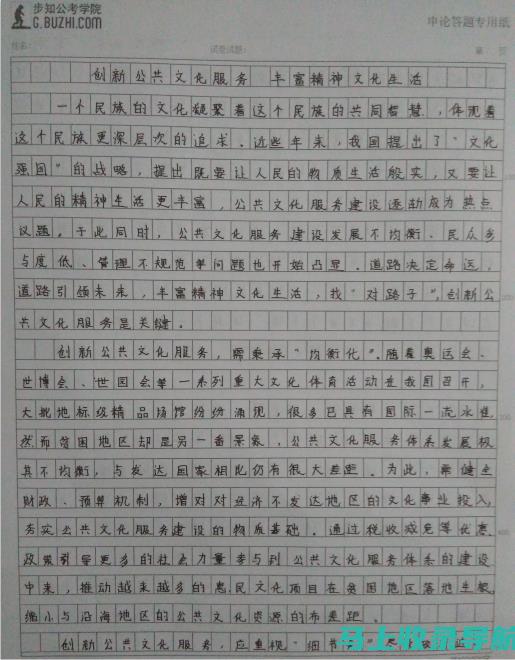 步知公考学院
G.BUZHI.COM
申论答题专用纸
姓名:
试卷试题:
第 页
创新公共文化服务 丰富精神文化生活
一个民族的文化凝聚着这个民族的共同智慧,体现着
这个民族更深层次的追求。近些年来,我国提出了“文化
强国”的战略,提出既要让人民的物质生活殷实,又要让
人民的精神生活更丰富,公共文化服务建设逐渐成为热点
议题。于此同时,公共文化服务建设发展不均衡、民众参
与度低、管理不规范等问题也开始凸显。道路决定命运,
道路引领未来,丰富精神文化生活,找“对路子”,创新公
共文化服务是关键。
创新公共文化服务,需秉承“均衡化”。随着奥运会、
世博会、世园会等一系列重大文化体育活动在我国召开,
大批地标级精品场馆纷纷涌现,很多已具有国际一流水准
然而贫困地区却是另一番景象,公共文化服务体系发展极
其不均衡,与发达国家相比仍有很大差距。为此,需健全
财政、预算机制,增对对经济不发达地区的文化事业投入,
夯实公共文化服务建设的物质基础。通过税收减免等优惠
政策引导更多的社会力量参与到公共文化服务体系的建设
中来,推动越来越多的惠民文化项目在贫困地区落地生根,
缩小与沿海地区的公共文化资源的布差距。
创新公共文化服务,应重视“细节
马上收录导航